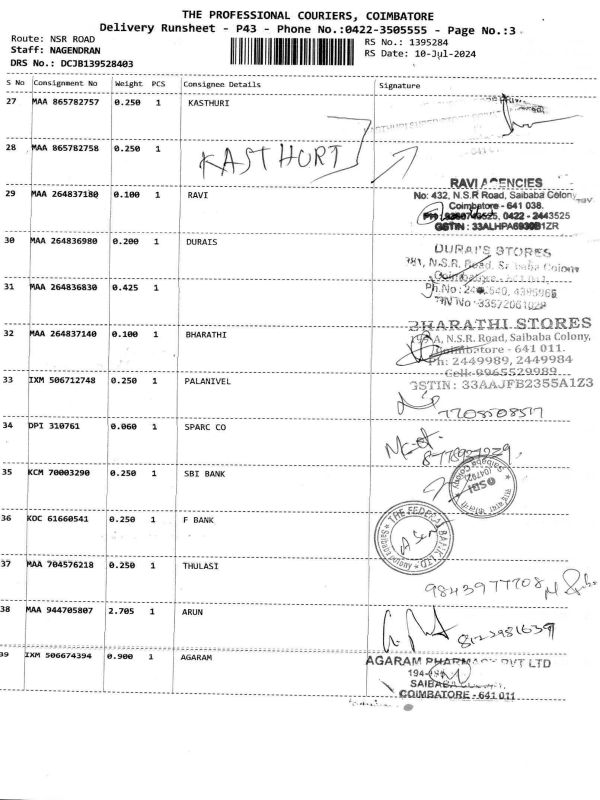 THE PROFESSIONAL COURIERS, COIMBATORE
Delivery Runsheet - P43 - Phone No.:0422-3505555 - Page No.:3
Route: NSR ROAD
RS No.: 1395284
Staff: NAGENDRAN
RS Date: 10-Jul-2024
DRS No.: DCJB139528403
S No Consignment No Weight PCS Consignee Details Signature
27 MAA 865782757 0.250 1 KASTHURI
28 MAA 865782758 0.250 1
KASTHURI
29 MAA 264837180 0.100 1 RAVI
RAVI AGENCIES
No: 432, N.S.R Road, Saibaba Colony,
Coimbatore - 641 038.
0422 - 2443525
GSTIN : 33ALHPA6930B1ZR
30 MAA 264836980 0.200 1 DURAIS
DURAI'S STORES
N.S.R. Road, Saibaba Colony
31 MAA 264836830 0.425 1
32 MAA 264837140 0.100 1 BHARATHI
BHARATHI STORES
N.S.R. Road, Saibaba Colony,
Coimbatore - 641 011.
Ph: 2449989, 2449984
Cell: 9965529989
GSTIN : 33AAJFB2355A1Z3
33 IXM 506712748 0.250 1 PALANIVEL
34 DPI 310761 0.060 1 SPARC CO
35 KCM 70003290 0.250 1 SBI BANK
SBI
36 KOC 61660541 0.250 1 F BANK
THE FEDERAL BANK LTD
37 MAA 704576218 0.250 1 THULASI
9843977708
38 MAA 944705807 2.705 1 ARUN
39 IXM 506674394 0.900 1 AGARAM
AGARAM PHARMACY PVT LTD
SAIBABA COLONY,
COIMBATORE - 641 011